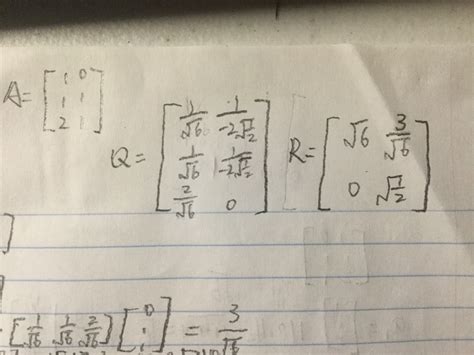 A = [1 0
1 1
2 1]
Q = [1/√6 1/-2√1/2
1/√6 1/-2√1/2
2/√6 0]
R = [√6 3/√6
0 √1/2]
[1/√6 1/√6 2/√6] [0
1
1] = 3/√6